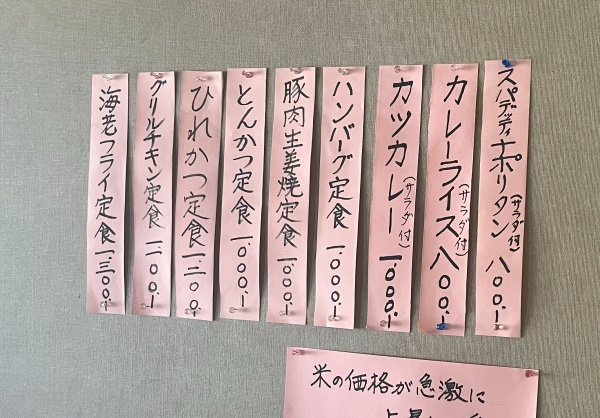 スパゲッティナポリタン(サラダ付)八〇〇.ー
カレーライス(サラダ付)八〇〇.ー
カツカレー(サラダ付)一.〇〇〇.ー
ハンバーグ定食一.〇〇〇.ー
豚肉生姜焼定食一.〇〇〇.ー
とんかつ定食一.〇〇〇.ー
ひれかつ定食一.二〇〇.
グリルチキン定食一.二〇〇.ー
海老フライ定食一.三〇〇.ー
米の価格が急激に